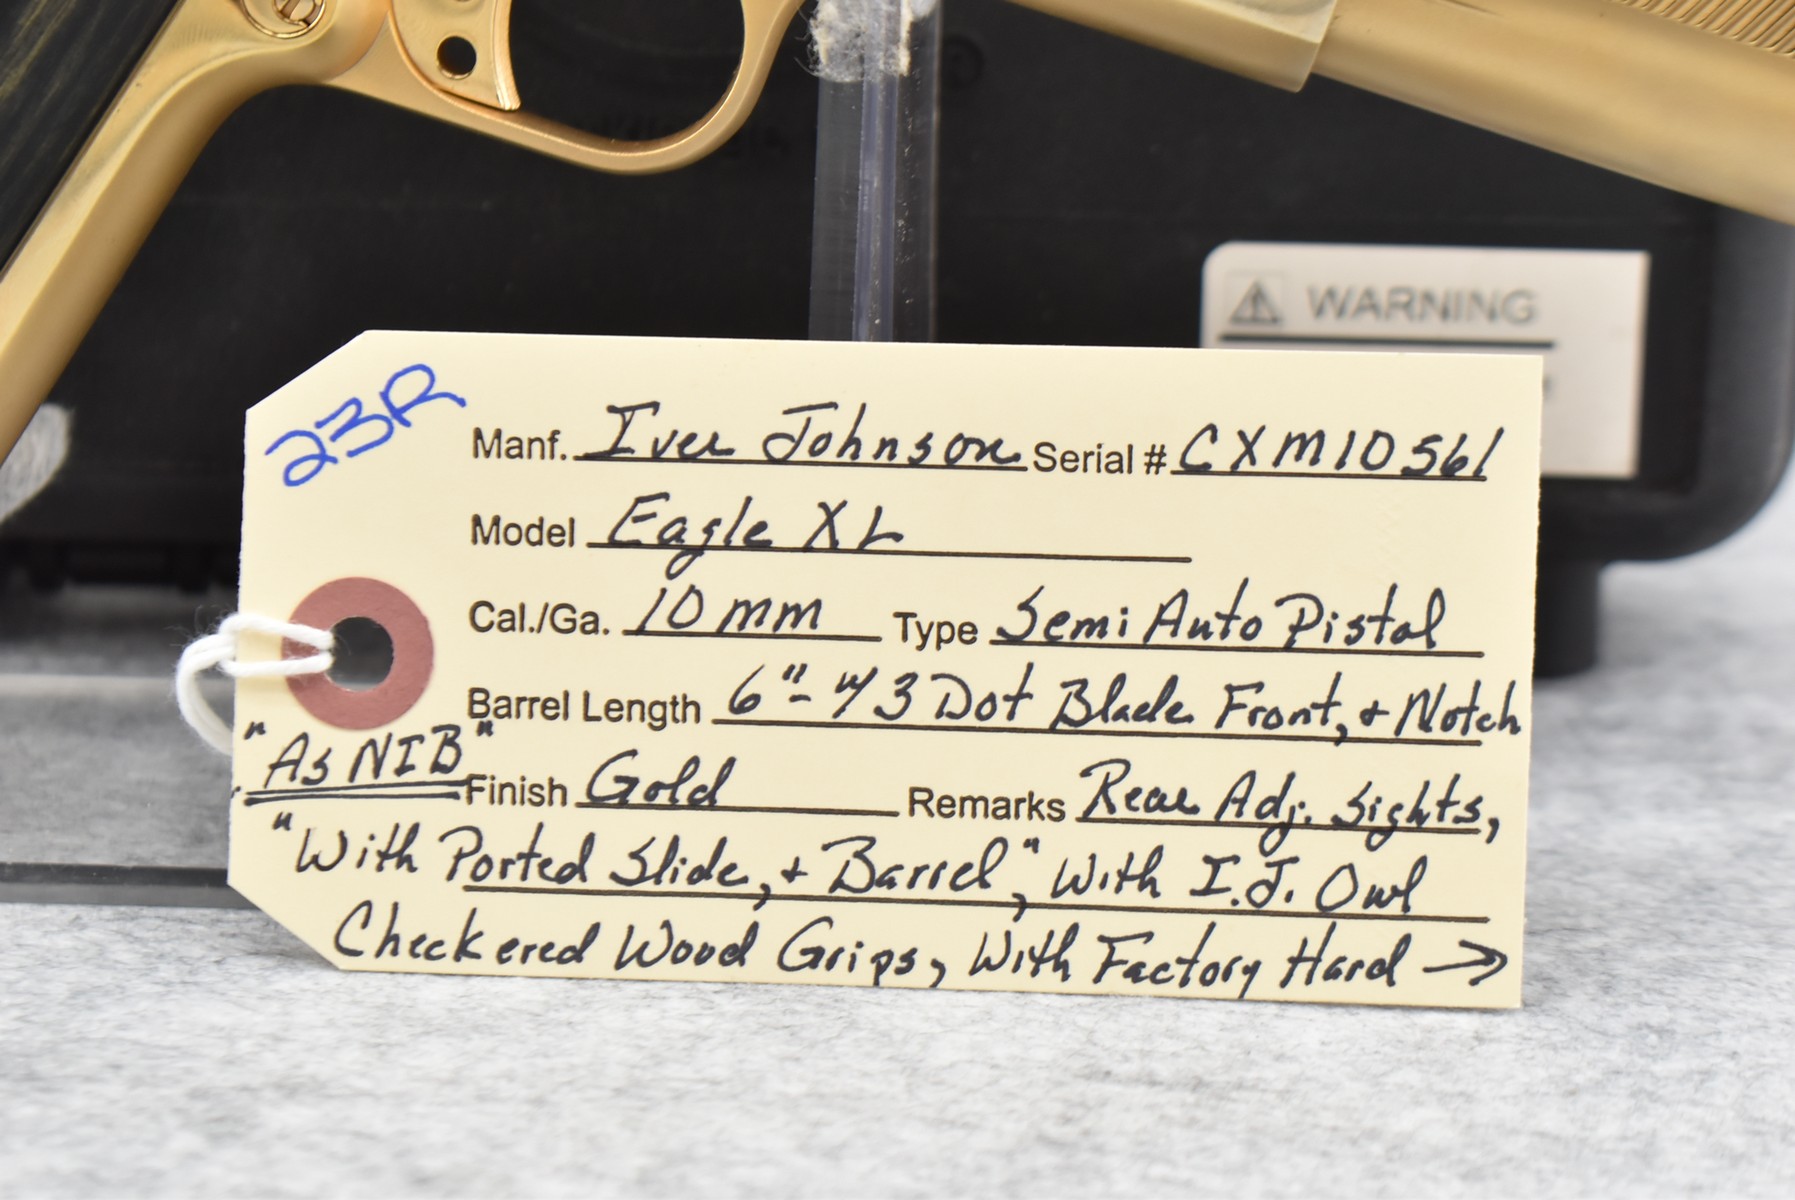 WARNING
23R
Manf. Iver Johnson Serial # CXM10561
Model Eagle XL
Cal./Ga. 10mm Type Semi Auto Pistol
Barrel Length 6"- w/3 Dot Blade Front, + Notch
"As NIB" Finish Gold Remarks Rear Adj. Sights,
"With Ported Slide, + Barrel", With I.J. Owl
Checkered Wood Grips, With Factory Hard →